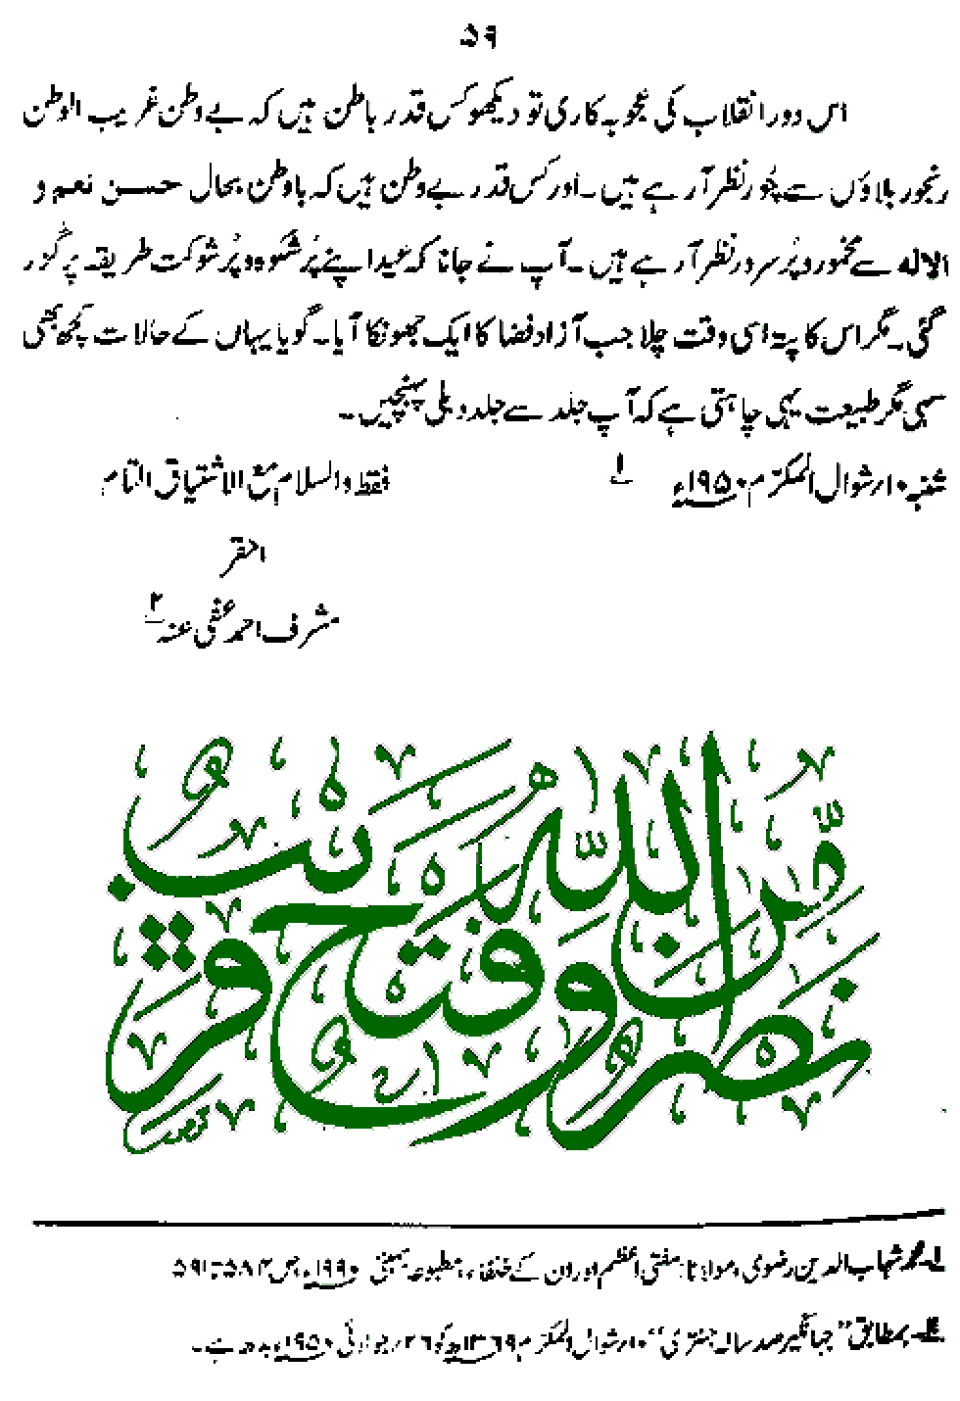 ۵۹
اس دور انقلاب کی عجوبہ کاری تو دیکھو کس قدر باطن ہیں کہ بے وطن غریب الوطن
رنجور بلاؤں سے چُور نظر آرہے ہیں۔ اور کس قدر بے وطن ہیں کہ باوطن بحال حسن نعم و
الالہ سے مخمور و پُر سرور نظر آرہے ہیں۔ آپ نے جانا کہ عید اپنے پُر شکوہ و پُر شوکت طریقہ پر گزر
گئی۔ مگر اس کا پتہ اسی وقت چلا جب آزاد فضا کا ایک جھونکا آیا۔ گویا یہاں کے حالات کچھ بھی
سہی مگر طبیعت یہی چاہتی ہے کہ آپ جلد سے جلد دہلی پہنچیں۔
شنبہ ۱۰؍ شوال المکرّم ۱۹۵۰ء ۱ فقط والسلام مع الاشتیاق التام
احقر
مشرف احمد عفی عنہ ۲
نَصْرٌ مِّنَ اللّٰهِ وَفَتْحٌ قَرِيبٌ
۱۔ محمد شہاب الدین رضوی، مولانا: مفتی اعظم اور ان کے خلفاء، مطبوعہ بمبئی ۱۹۹۰ء، ص ۵۸۴ تا ۵۹۱
۲۔ بمطابق "جہانگیر صد سالہ جنتری" ۱۰؍ شوال المکرّم ۱۳۶۹ھ کو ۲۶؍ جولائی ۱۹۵۰ء بدھ ہے۔